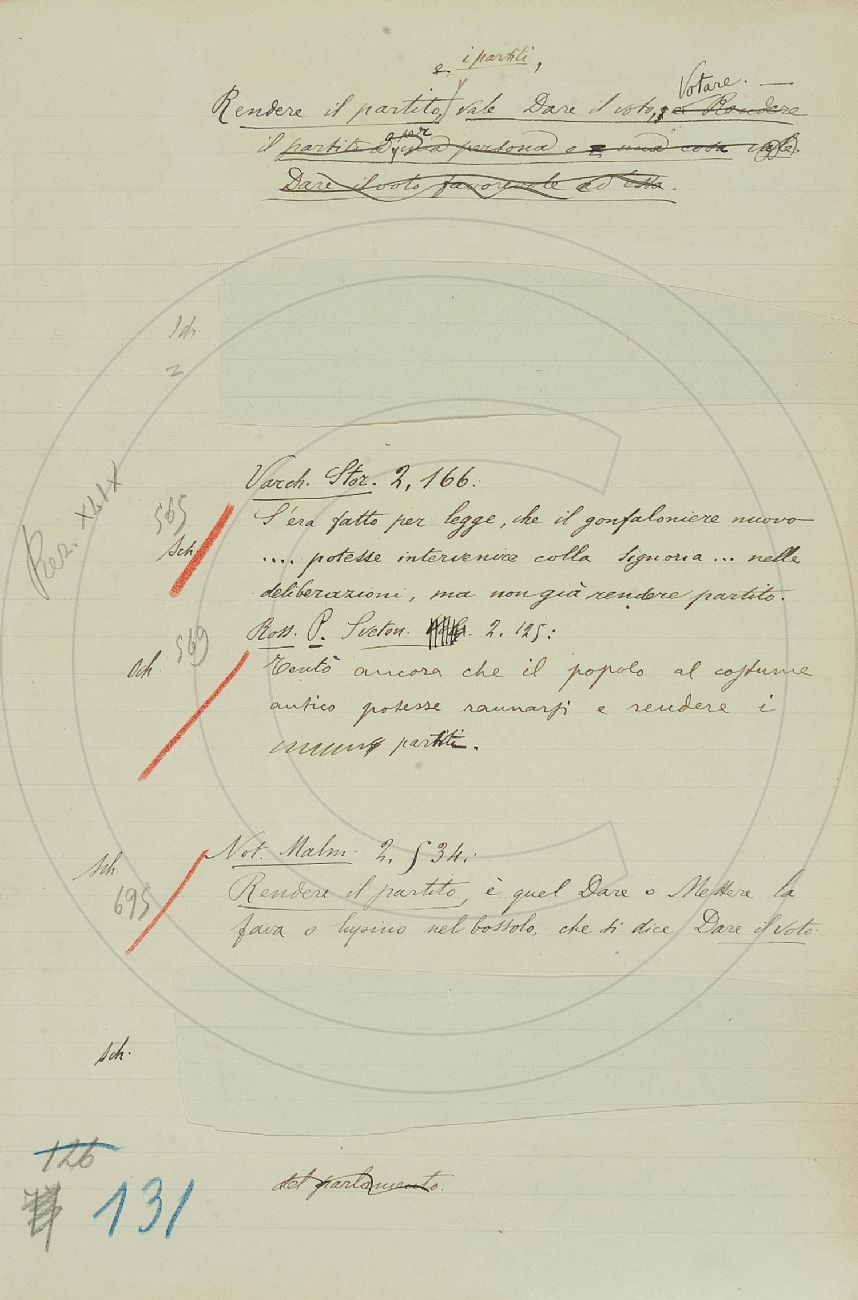 e i partiti,
Rendere il partito, vale Dare il voto, Votare. —
e Rendere
il partito a una per persona o a una cosa vale
Dare il voto favorevole ad essa.
Sch.
2
Varch. Stor. 2, 166.
Rez. XLIX
565
Sch.
S'era fatto per legge, che il gonfaloniere nuovo
.... potesse intervenire colla Signoria... nelle
deliberazioni, ma non già rendere partito.
Ross. P. Sveton. 2. 125:
569
sch
Tentò ancora che il popolo al costume
antico potesse raunarsi e rendere i
partiti.
Not. Malm. 2. § 34.:
Sch
695
Rendere il partito, è quel Dare o Mettere la
fava o lupino nel bossolo, che si dice Dare il voto.
sch.
126
131
del parlamento.